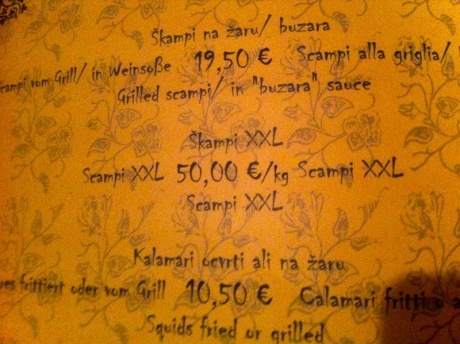 Škampi na žaru/ buzara
Scampi vom Grill/ in Weinsoße 19,50 € Scampi alla griglia/
Grilled scampi/ in "buzara" sauce
Škampi XXL
Scampi XXL 50,00 €/kg Scampi XXL
Scampi XXL
Kalamari ocvrti ali na žaru
frittiert oder vom Grill 10,50 € Calamari fritti o
Squids fried or grilled